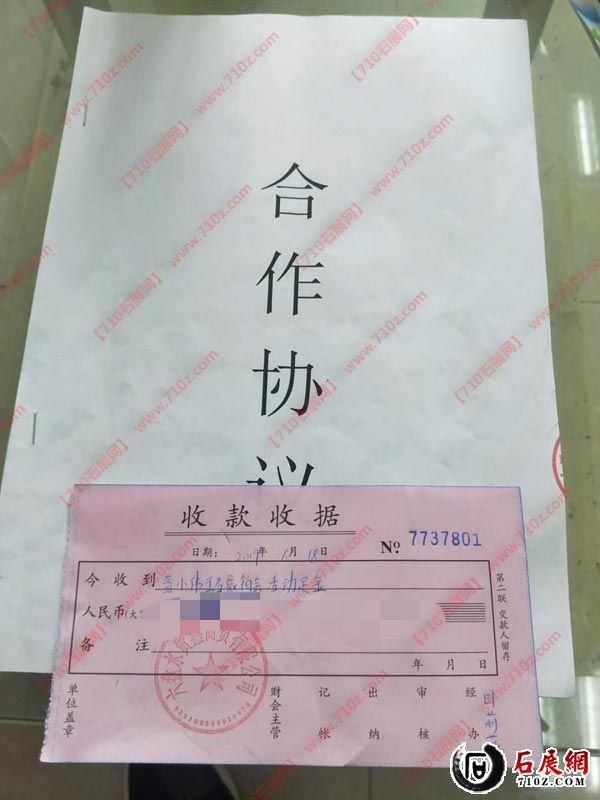 合
作
协
议
收款收据
日期: 2019年 6月 18日
№ 7737801
今收到
活动定金
人民币(大
备 注
年 月 日
第二联 交款人留存
单位盖章
财会主管
记帐
出纳
审核
经办
【710石展网】 www.710z.com
石展網
710Z.COM